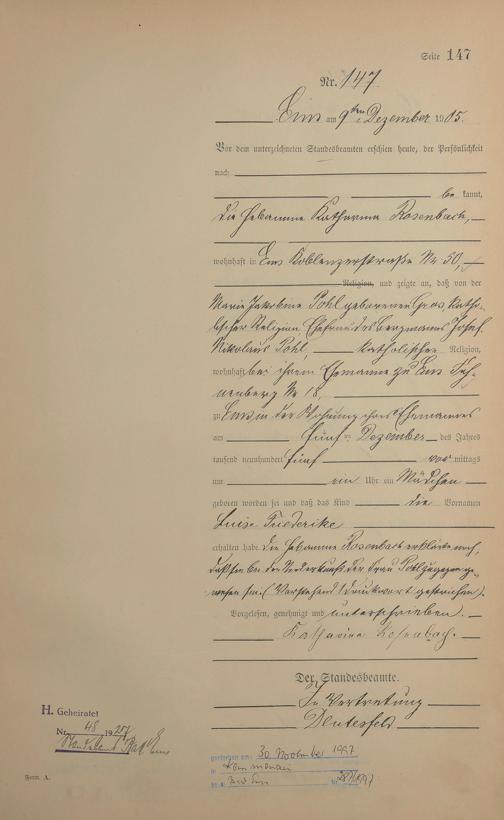 Seite 147
Nr. 147
Ems am 9ten Dezember 1905.
Vor dem unterzeichneten Standesbeamten erschien heute, der Persönlichkeit
nach
be kannt,
die Hebamme Katharina Rosenbach,
wohnhaft in Ems Koblenzerstraße Nr 50,
Religion, und zeigte an, daß von der
Marie Pohl geborenen Gras, katho-
lischer Religion Ehefrau des Bergmanns Josef
Nikolaus Pohl, katholischer Religion,
wohnhaft bei ihrem Ehemanne zu Ems
Nr 18,
zu Ems in der Wohnung ihres Ehemannes
am fünften Dezember des Jahres
tausend neunhundert fünf vor mittags
um ein Uhr ein Mädchen
geboren worden sei und daß das Kind die Vornamen
Luise Friederike
erhalten habe. Die Hebamme Rosenbach erklärte noch,
daß sie bei der Niederkunft der Frau Pohl zugegen ge-
wesen sei. (Vorstehend 1 Druckwort gestrichen).
Vorgelesen, genehmigt und unterschrieben.
Katharina Rosenbach.
Der Standesbeamte.
In Vertretung
H. Geheiratet
Nr. 48 19
Standesamt Bad Ems
gestorben am: 30 November 1997
in
Bad Ems
Nr.
Form. A.